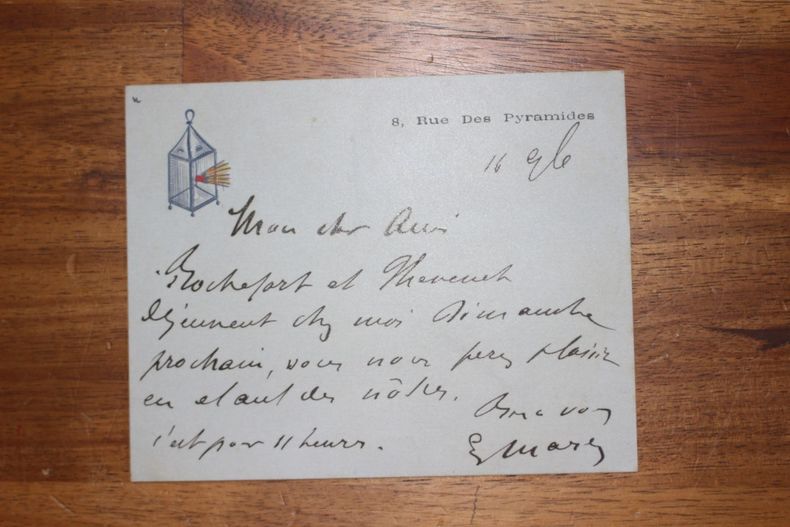 8, Rue Des Pyramides
16 9bre
Mon cher Ami
Rochefort et Thevenet
déjeunent chez moi Dimanche
prochain, vous nous ferez plaisir
en etant des nôtres.
c'est pour 11 heures.
Bien à vous